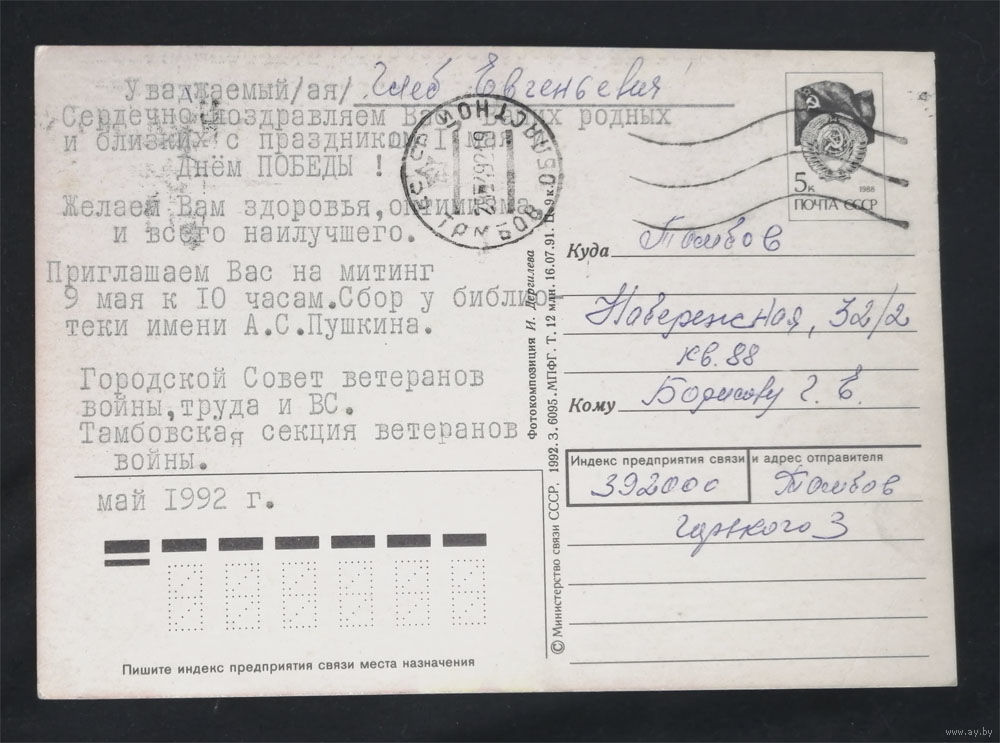 Уваджаемый/ая/ Глеб Евгеньевия
Сердечно поздравляем Вас родных
и близких с праздником I мая
Днём ПОБЕДЫ !
Желаем Вам здоровья, оптимизма
и всего наилучшего.
Приглашаем Вас на митинг
9 мая к IO часам.Сбор у библио-
теки имени А.С.Пушкина.
Городской Совет ветеранов
войны,труда и ВС.
Тамбовская секция ветеранов
войны.
май I992 г.
Пишите индекс предприятия связи места назначения
© Министерство связи СССР, 1992. З. 6095. МПФГ. Т. 12 млн. 16.07.91. Ц. 9 к.
Фотокомпозиция И. Дергилева
ТАМБОВ
5к
1988
ПОЧТА СССР
Куда Тамбов
Набережная, 32/2
кв. 88
Кому Борисову Г. Е.
Индекс предприятия связи и адрес отправителя
392000 Тамбов
Горького 3
www.ay.by